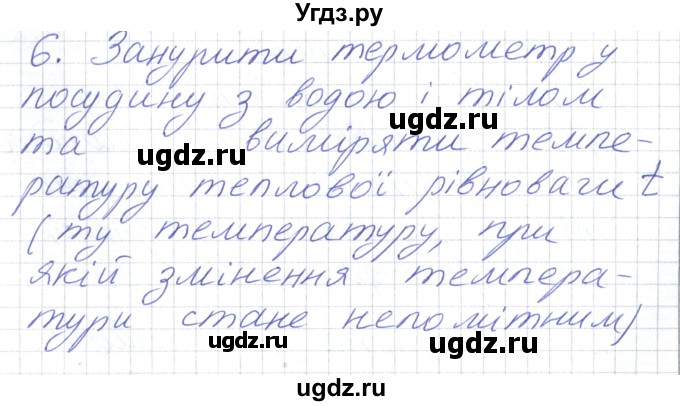 Угдз.ру
6. Занурити термометр у
посудину з водою і тілом
ugdz.ru
та виміряти темпе-
ugdz.ru
ратуру теплової рівноваги t
(ту температуру, при
якій змінення темпера-
тури стане непомітним)
ugdz.ru ugdz.ru
ugdz.ru